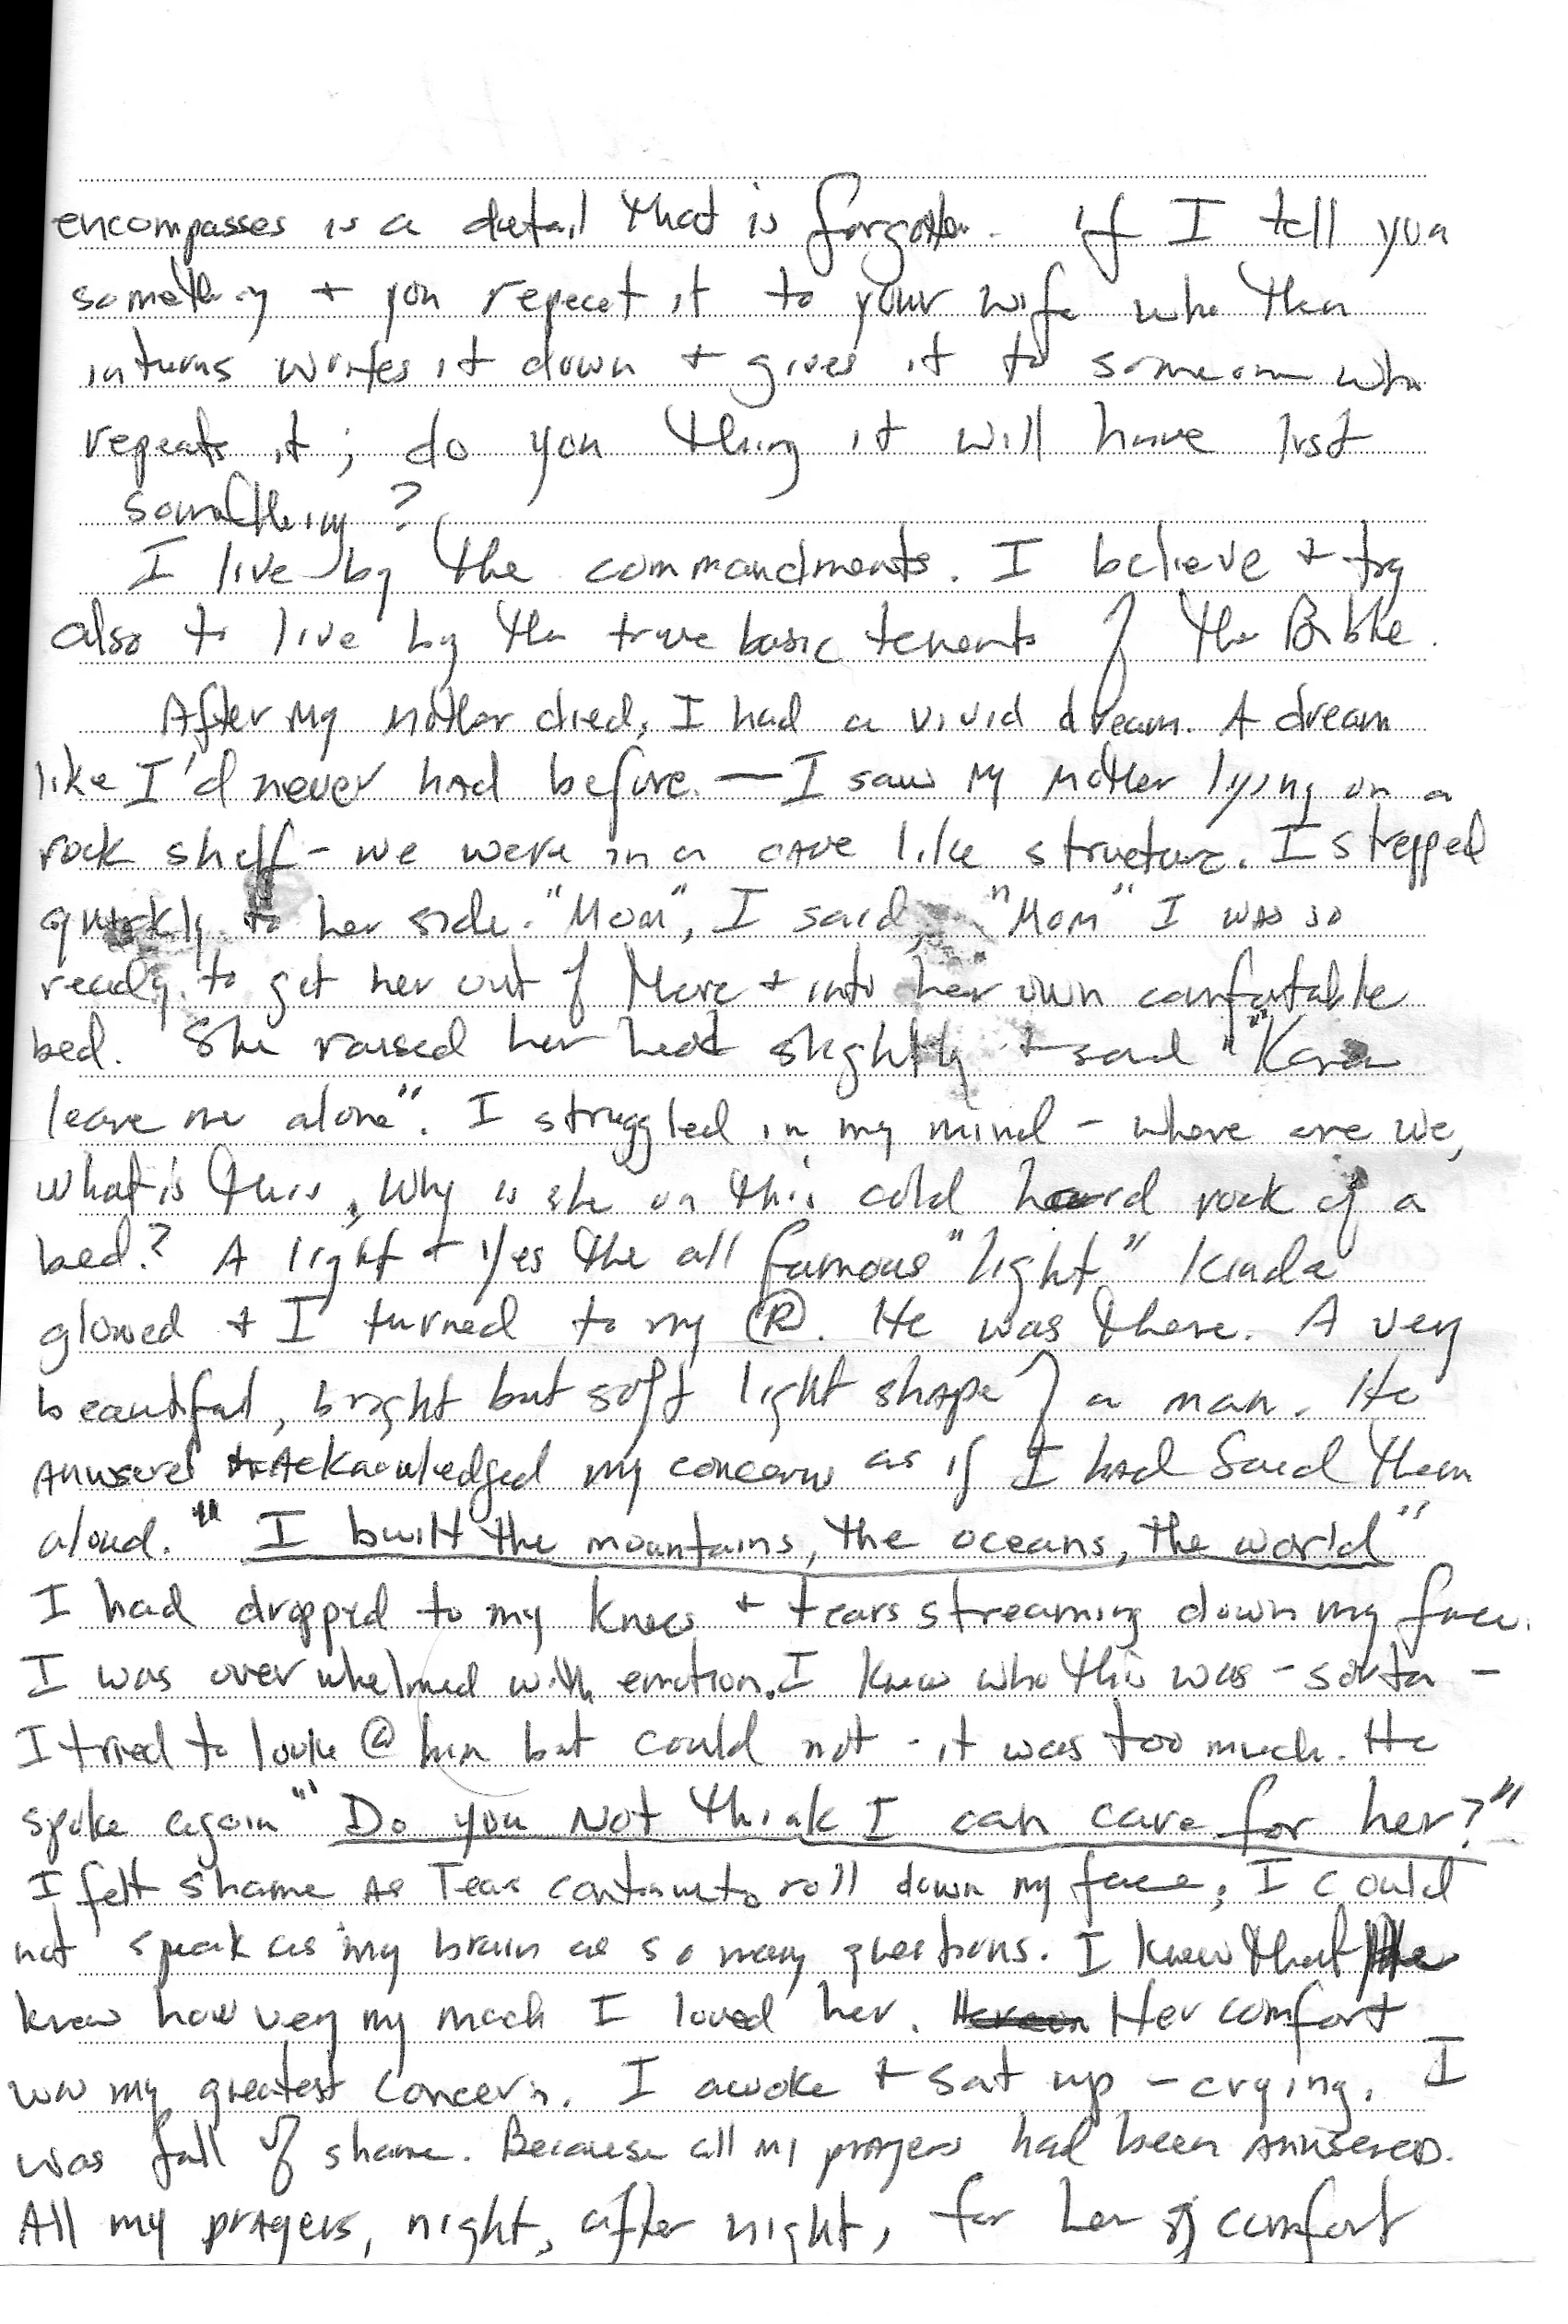 encompasses is a detail that is forgotten. If I tell you
something + you repeat it to your wife who then
inturns writes it down + gives it to someone who
repeats it; do you thing it will have lost
something?
I live by the commandments. I believe + try
also to live by the true basic tenents of the Bible.
After my mother died, I had a vivid dream. A dream
like I'd never had before. — I saw my mother lying on a
rock shelf - we were in a cave like structure. I stepped
quickly to her side. "Mom", I said, "Mom" I was so
ready to get her out of there + into her own comfortable
bed. She raised her head slightly + said "Karen
leave me alone". I struggled in my mind - where are we,
what is this, Why is she on this cold hard rock of a
bed? A light + yes the all famous "light" kinda
glowed + I turned to my Ⓡ. He was there. A very
beautiful, bright but soft light shape of a man. He
answered acknowledged my concerns as if I had said them
aloud. "I built the mountains, the oceans, the world"
I had dropped to my knees + tears streaming down my face.
I was over whelmed with emotion. I knew who this was - sorta -
I tried to look @ him but could not - it was too much. He
spoke again "Do you not think I can care for her?"
I felt shame as Tears continue to roll down my face, I could
not speak as my brain as so many questions. I knew that he
knew how very my much I loved her. Her comfort
was my greatest concern. I awoke + sat up - crying. I
was full of shame. Because all my prayers had been answered.
All my prayers, night, after night, for her comfort